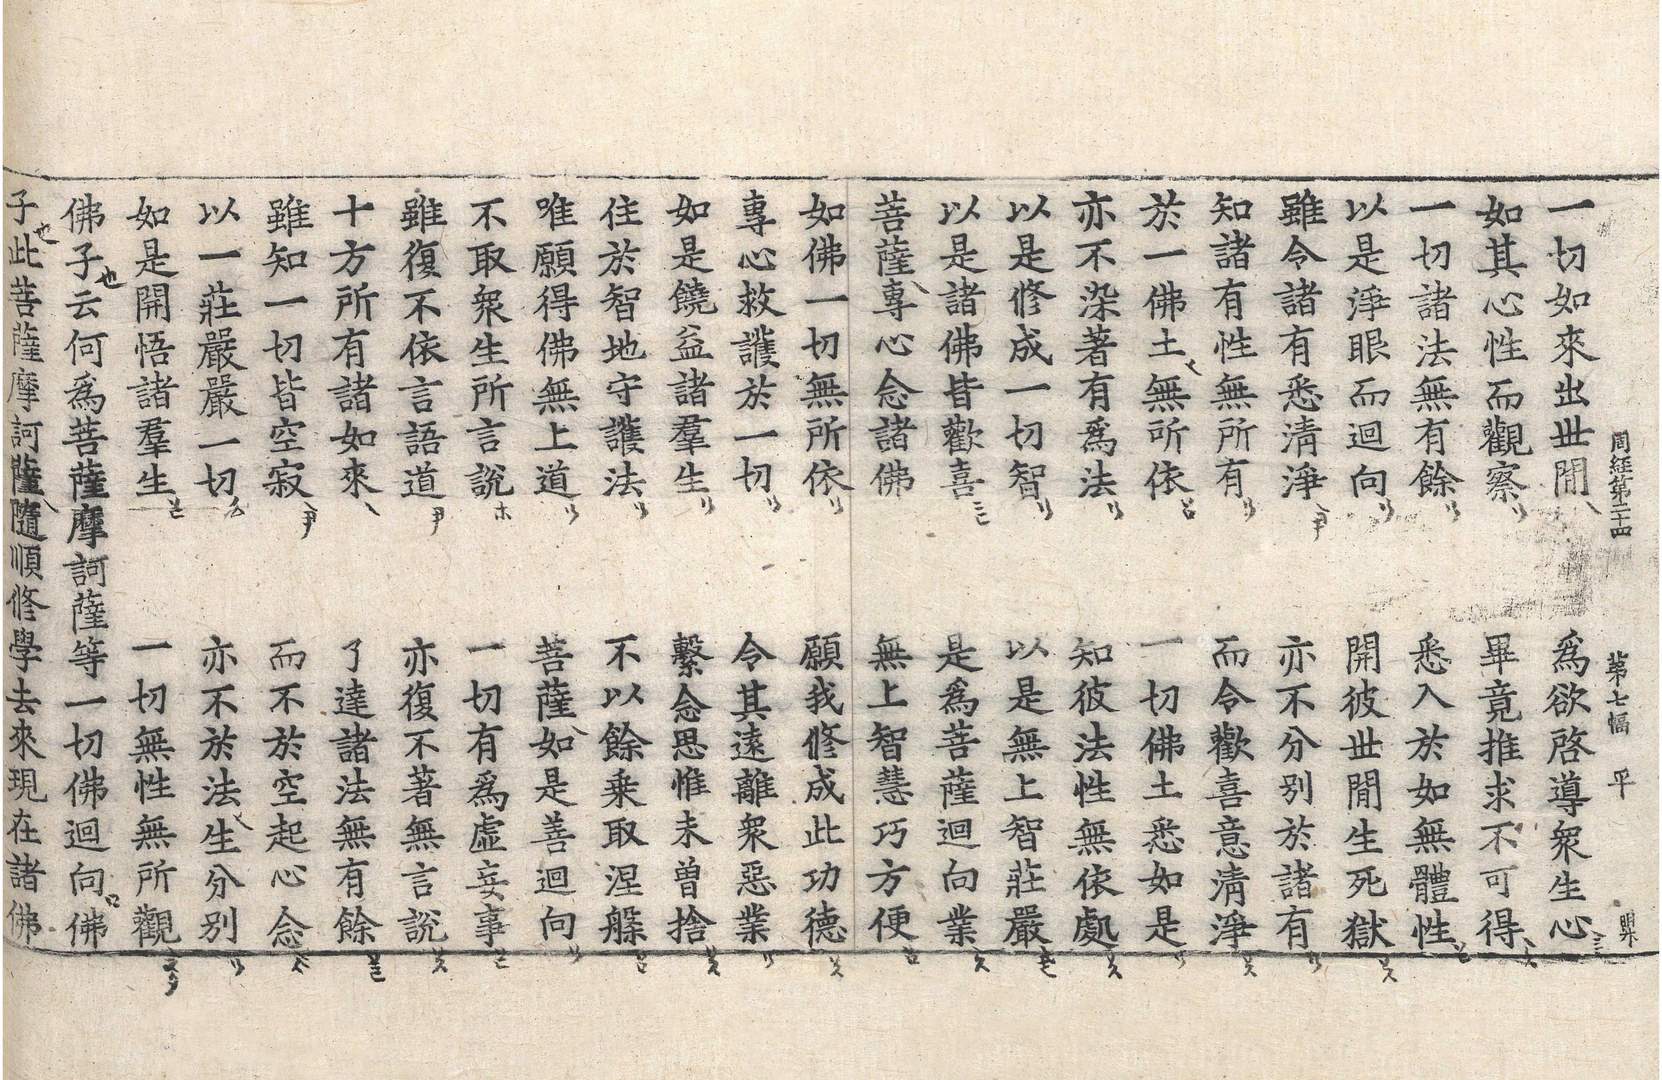 周經第二十四 第七幅 平
一切如來出世間 爲欲啓導衆生心
如其心性而觀察 畢竟推求不可得
一切諸法無有餘 悉入於如無體性
以是淨眼而迴向 開彼世間生死獄
雖令諸有悉清淨 亦不分別於諸有
知諸有性無所有 而令歡喜意清淨
於一佛土無所依 一切佛土悉如是
亦不染著有爲法 知彼法性無依處
以是修成一切智 以是無上智莊嚴
以是諸佛皆歡喜 是爲菩薩迴向業
菩薩專心念諸佛 無上智慧巧方便
如佛一切無所依 願我修成此功德
專心救護於一切 令其遠離衆惡業
如是饒益諸羣生 繫念思惟未曾捨
住於智地守護法 不以餘乘取涅槃
唯願得佛無上道 菩薩如是善迴向
不取衆生所言說 一切有爲虛妄事
雖復不依言語道 亦復不著無言說
十方所有諸如來 了達諸法無有餘
雖知一切皆空寂 而不於空起心念
以一莊嚴嚴一切 亦不於法生分別
如是開悟諸羣生 一切無性無所觀
佛子云何爲菩薩摩訶薩等一切佛迴向佛
子此菩薩摩訶薩隨順修學去來現在諸佛